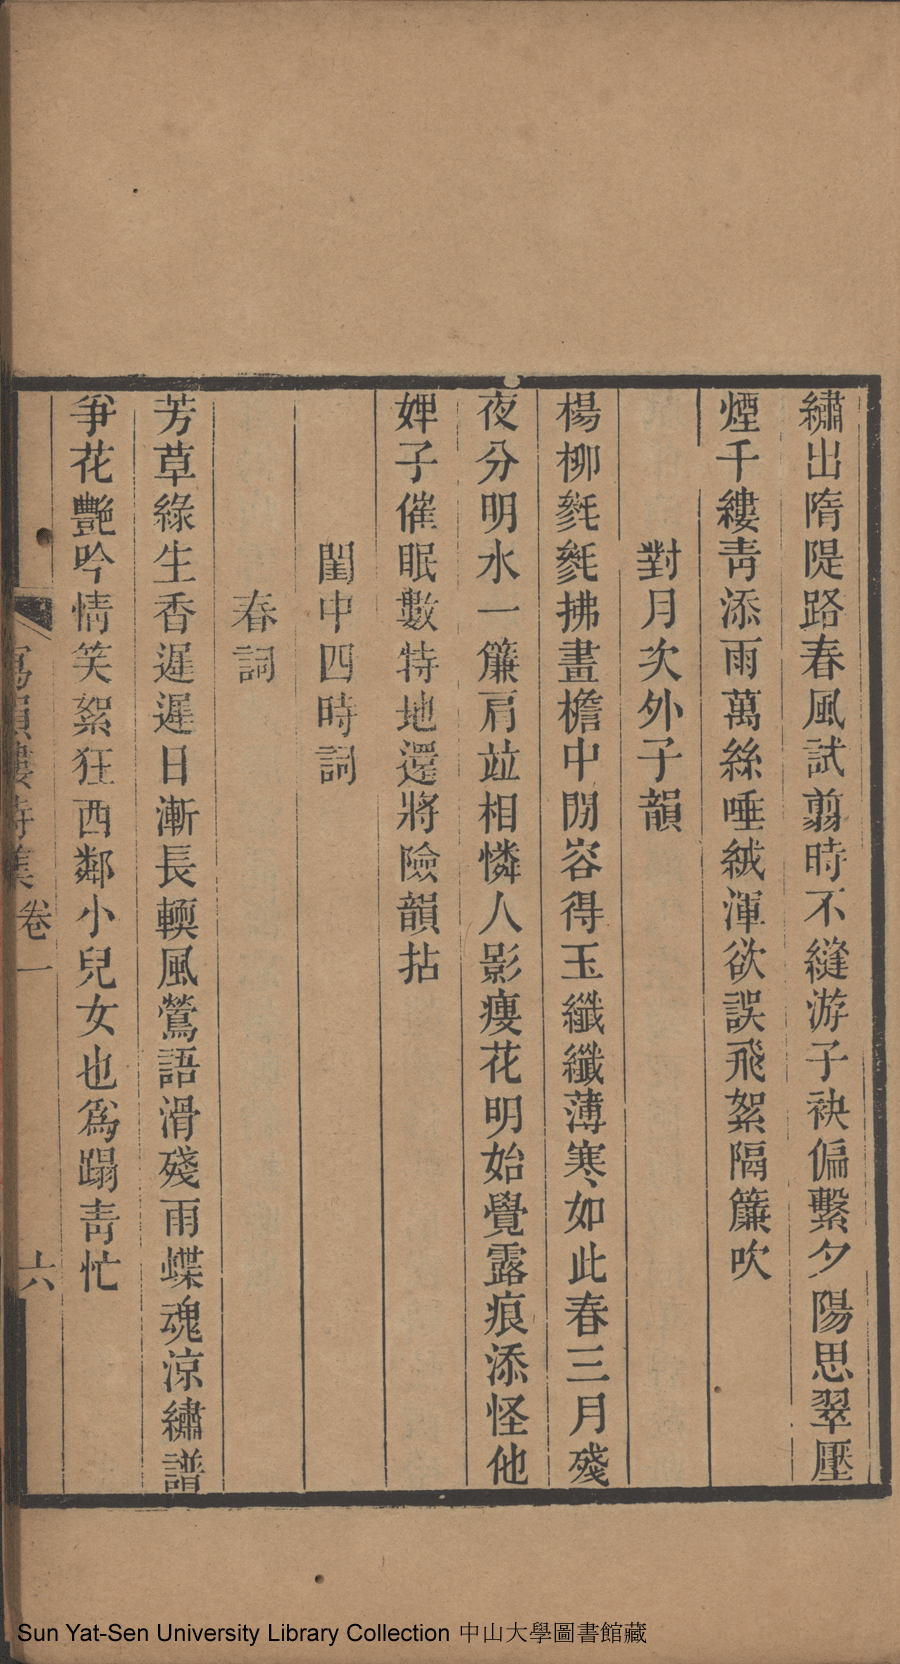 繡出隋隄路春風試翦時不縫游子袂偏繫夕陽思翠壓
煙千縷靑添雨萬絲唾絨渾欲誤飛絮隔簾吹
對月次外子韻
楊柳毿毿拂畫檐中閒容得玉纖纖薄寒如此春三月殘
夜分明水一簾肩竝相憐人影瘦花明始覺露痕添怪他
婢子催眠數特地還將險韻拈
閨中四時詞
春詞
芳草綠生香遲遲日漸長輭風鶯語滑殘雨蝶魂涼繡譜
爭花艷吟情笑絮狂西鄰小兒女也爲蹋靑忙
寫韻樓詩集 卷一 六
Sun Yat-Sen University Library Collection 中山大學圖書館藏